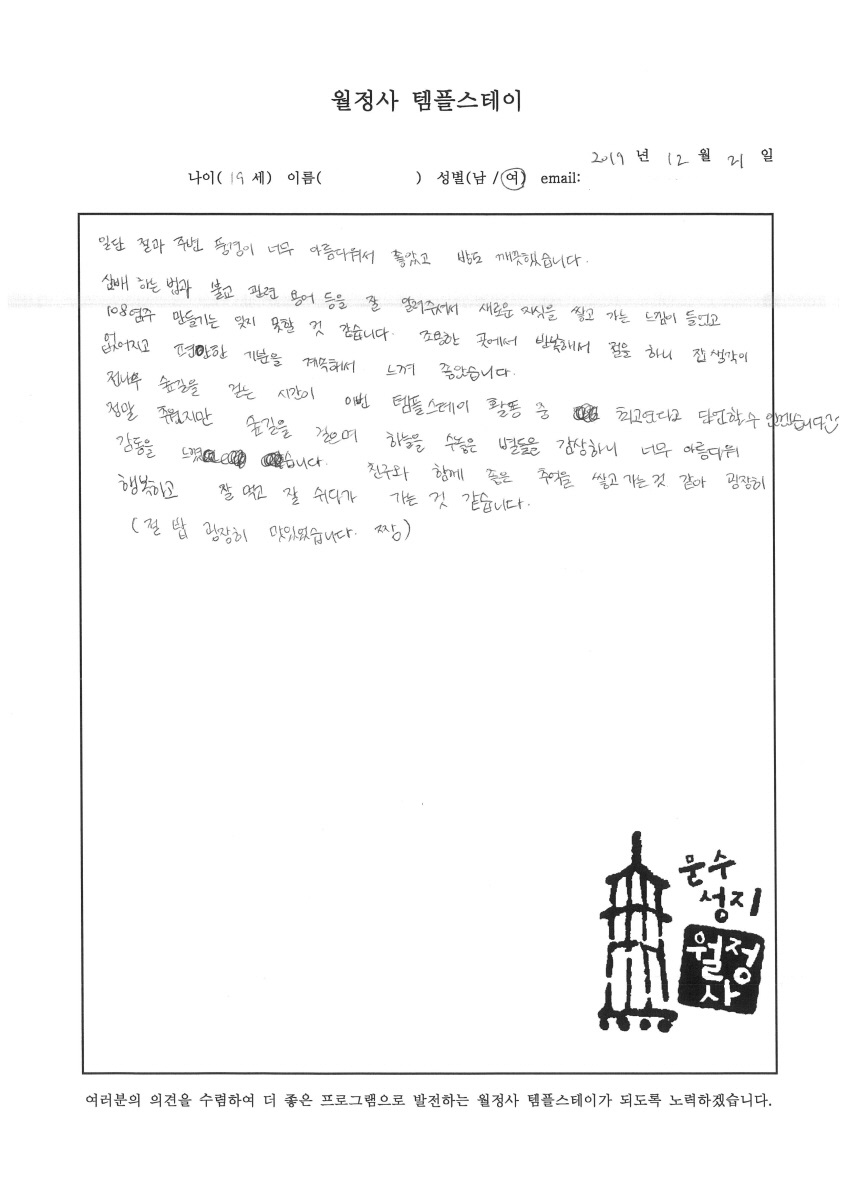 월정사 템플스테이
2019 년 12 월 21 일
나이( 19 세) 이름( ) 성별(남 / 여) email:
일단 절과 주변 풍경이 너무 아름다워서 좋았고 방도 깨끗했습니다.
삼배 하는 법과 불교 관련 용어 등을 잘 알려주셔서 새로운 지식을 쌓고 가는 느낌이 들었고
108염주 만들기는 잊지 못할 것 같습니다. 조용한 곳에서 반복해서 절을 하니 잡생각이
없어지고 편안한 기분을 계속해서 느껴 좋았습니다.
전나무 숲길을 걷는 시간이 이번 템플스테이 활동 중 최고였다고 단언할 수 있겠습니다
정말 추웠지만 숲길을 걸으며 하늘을 수놓은 별들을 감상하니 너무 아름다워
감동을 느꼈습니다. 친구와 함께 좋은 추억을 쌓고 가는 것 같아 굉장히
행복하고 잘 먹고 잘 쉬다가 가는 것 같습니다.
(절 밥 굉장히 맛있었습니다. 짱)
문수
성지
월정
사
여러분의 의견을 수렴하여 더 좋은 프로그램으로 발전하는 월정사 템플스테이가 되도록 노력하겠습니다.